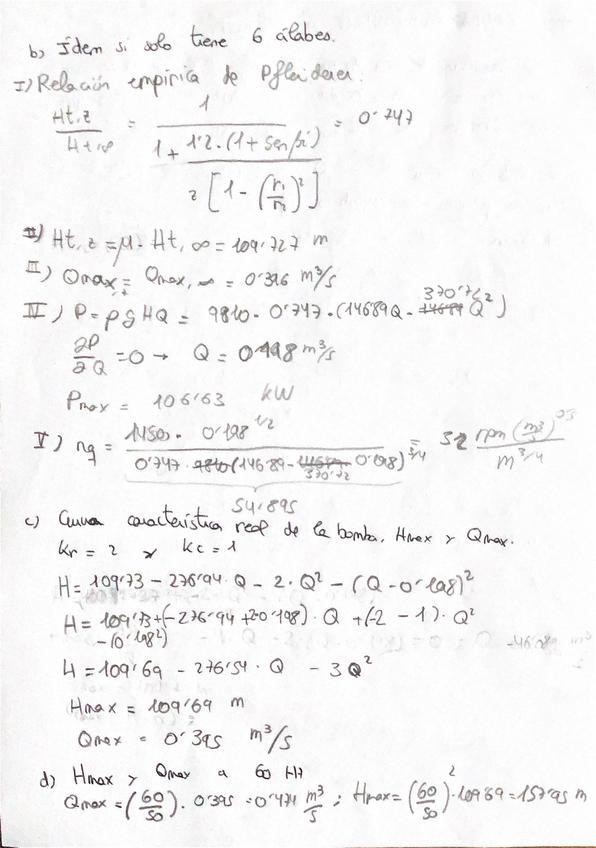 b) Ídem si solo tiene 6 álabes.
I) Relación empírica de Pfleiderer.
Ht,z / Ht,∞ = 1 / (1 + 1'2·(1+senβ1) / z[1-(r1/r2)²]) = 0'747
II) Ht,z = μ· Ht,∞ = 109'727 m
III) Qmax,t = Qmax,∞ = 0'396 m³/s
IV) P = ρgHQ = 9810· 0'747·(146'89Q - 370'72 Q²)
∂P/∂Q = 0 → Q = 0'198 m³/s
Pmax = 106'63 kW
V) nq = 1450· 0'198^1/2 / (0'747·(146'89 - 370'72 0'198))^3/4 = 32 rpm (m³/s)^0'5 / m^3/4
54'895
c) Curva característica real de la bomba, Hmax y Qmax.
Kr = 2 y Kc = 1
H = 109'73 - 276'94·Q - 2·Q² - (Q - 0'198)²
H = 109'73 + (-276'94 + 2·0'198)·Q + (-2 - 1)·Q²
-(0'198²)
H = 109'69 - 276'54·Q - 3Q²
Hmax = 109'69 m
Qmax = 0'395 m³/s
d) Hmax y Qmax a 60 Hz
Qmax = (60/50)· 0'395 = 0'474 m³/s ; Hmax = (60/50)²·109'69 = 157'95 m